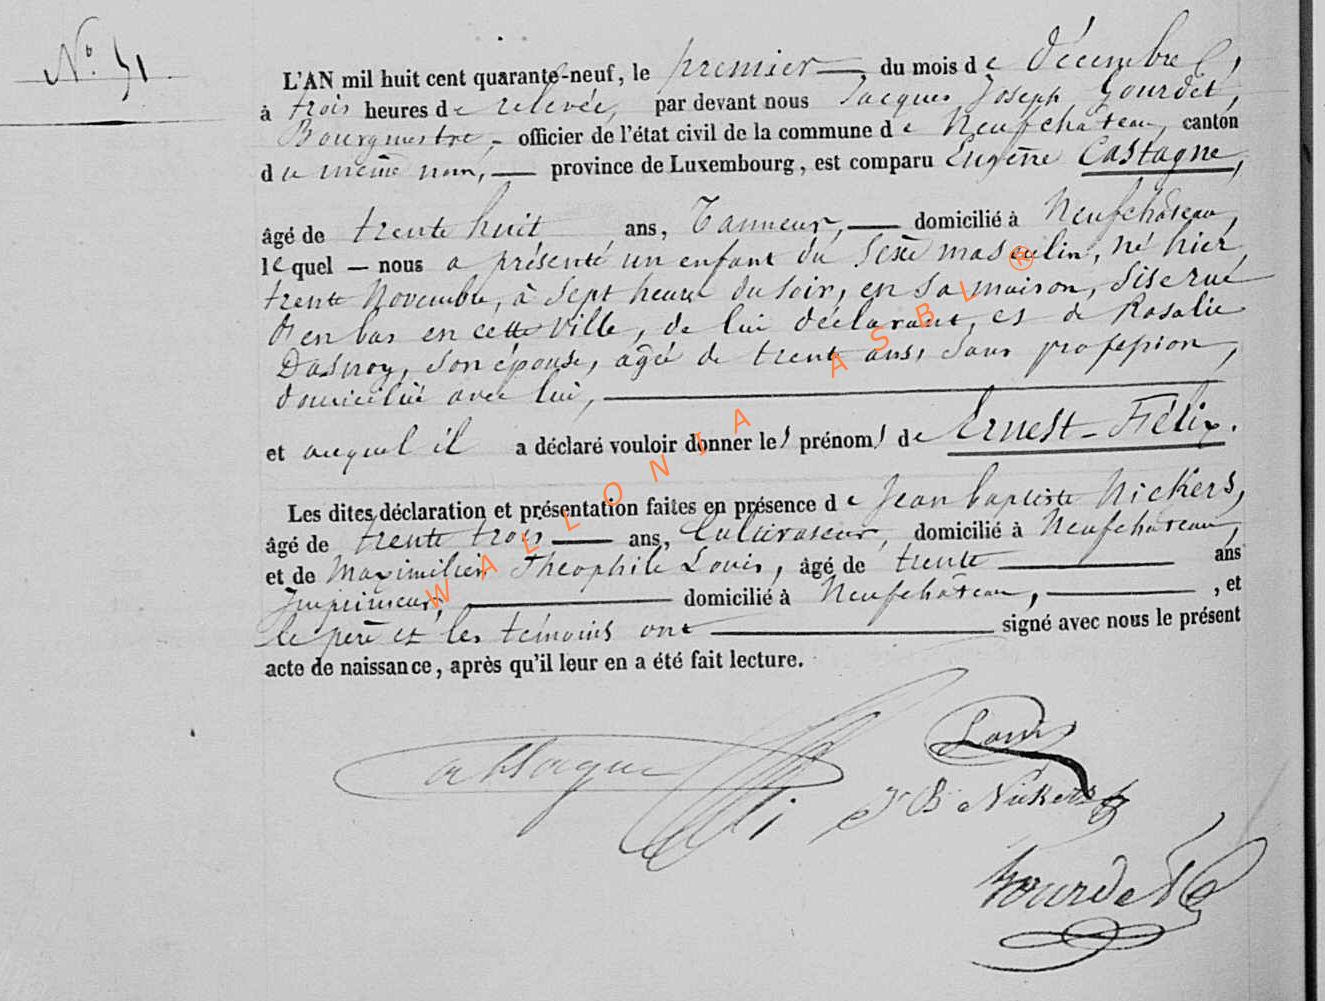 N.º 51
L'AN mil huit cent quarante-neuf, le premier du mois de Décembre,
à trois heures de relevée, par devant nous Jacques Joseph Gourdet,
Bourgmestre, officier de l'état civil de la commune de Neufchâteau, canton
du même nom, province de Luxembourg, est comparu Eugène Castagne,
âgé de trente huit ans, Tanneur, domicilié à Neufchâteau,
lequel nous a présenté un enfant du sexe masculin, né hier
trente Novembre, à sept heures du soir, en sa maison, sise rue
en bas en cette ville, de lui déclarant, et de Rosalie
Dasnoy, son épouse, âgée de trente ans, sans profession,
domiciliée avec lui,
et auquel il a déclaré vouloir donner les prénoms de Ernest-Félix.
Les dites déclaration et présentation faites en présence de Jean baptiste Nickers,
âgé de trente trois ans, Cultivateur, domicilié à Neufchâteau,
et de Maximilien Théophile Louis, âgé de trente ans
Imprimeur, domicilié à Neufchâteau, , et
le père et les témoins ont signé avec nous le présent
acte de naissance, après qu'il leur en a été fait lecture.
Castagne Louis
J B Nickers
Gourdet
WALLONIA ASBL ®